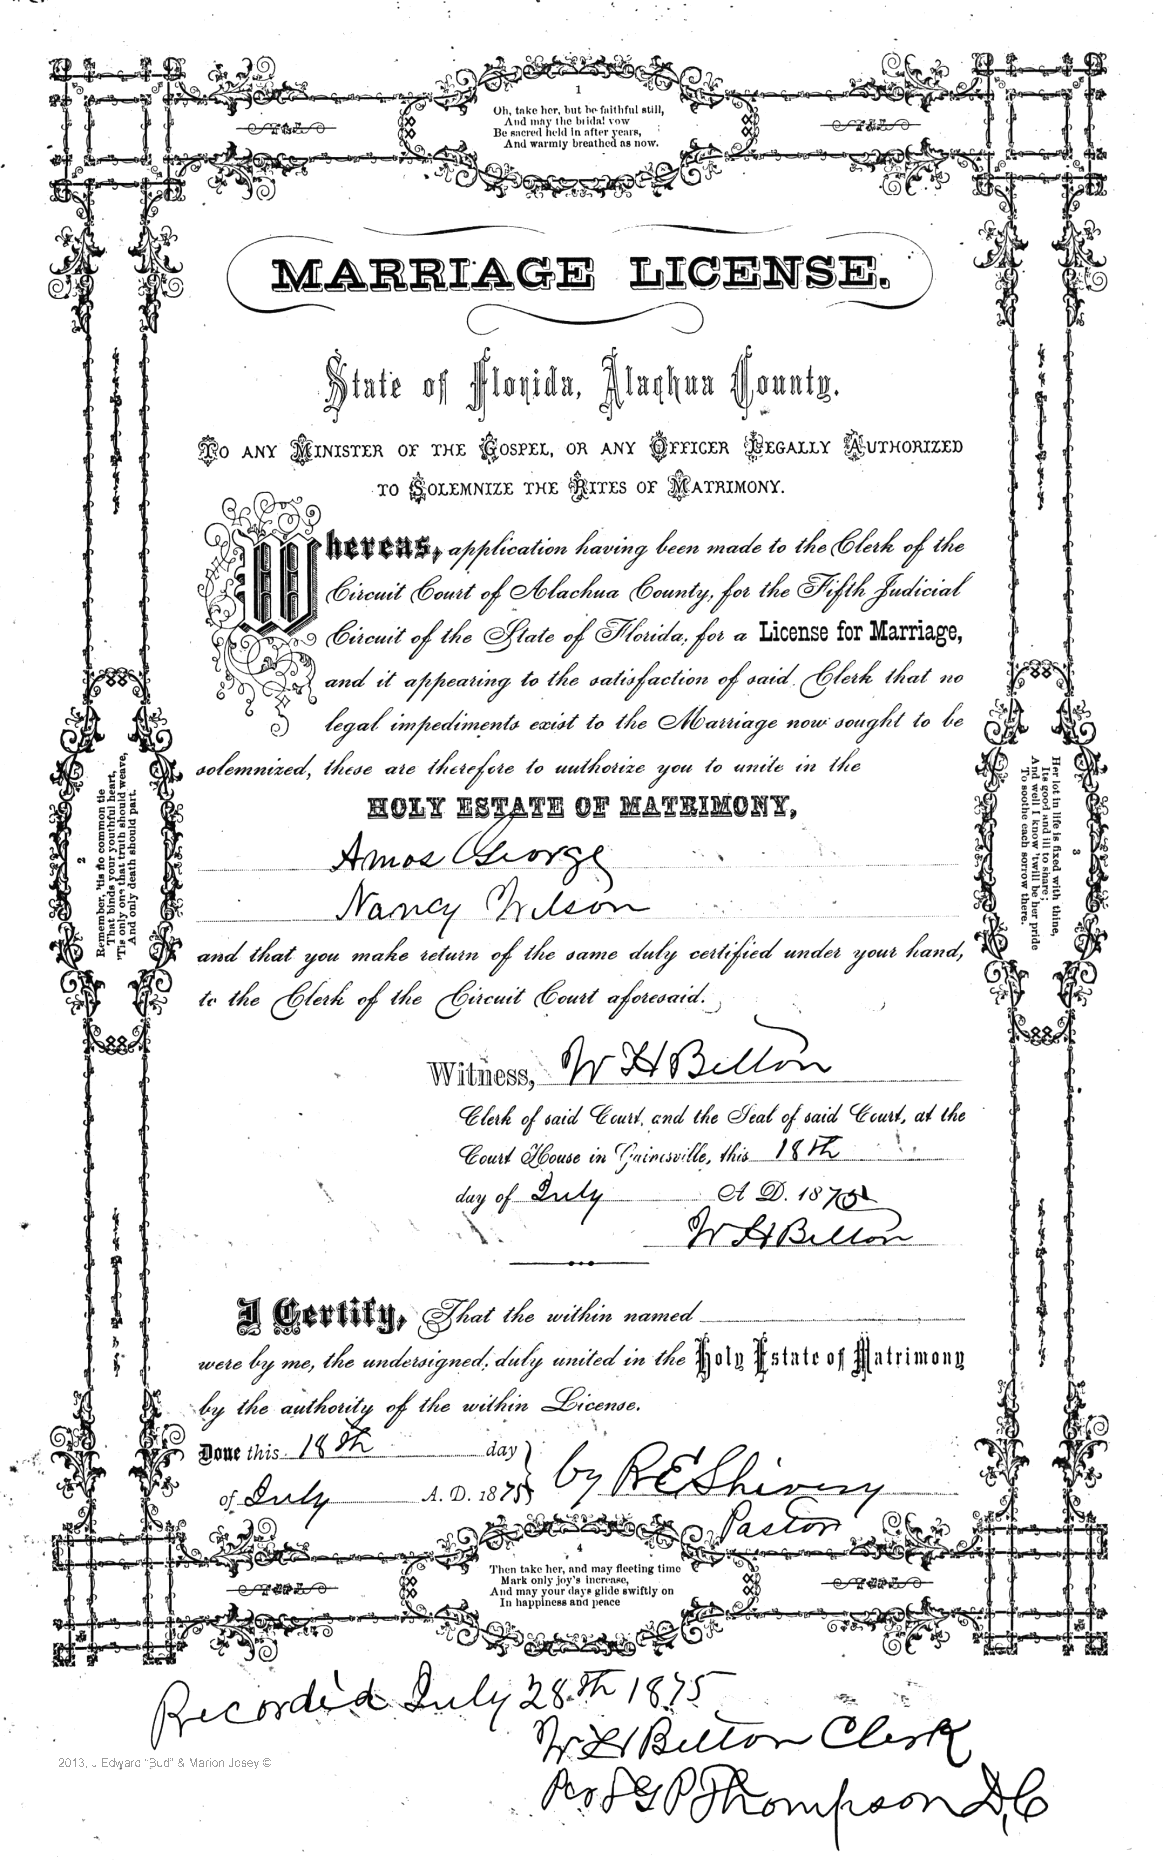 1
Oh, take her, but be faithful still,
And may the bridal vow
Be sacred held in after years,
And warmly breathed as now.
MARRIAGE LICENSE.
State of Florida, Alachua County.
TO ANY MINISTER OF THE GOSPEL, OR ANY OFFICER LEGALLY AUTHORIZED
TO SOLEMNIZE THE RITES OF MATRIMONY.
Whereas, application having been made to the Clerk of the
Circuit Court of Alachua County, for the Fifth Judicial
Circuit of the State of Florida, for a License for Marriage,
and it appearing to the satisfaction of said Clerk that no
legal impediments exist to the Marriage now sought to be
solemnized, these are therefore to authorize you to unite in the
HOLY ESTATE OF MATRIMONY,
Amos George
Nancy Wilson
and that you make return of the same duly certified under your hand,
to the Clerk of the Circuit Court aforesaid.
Witness, W H Belton
Clerk of said Court, and the Seal of said Court, at the
Court House in Gainesville, this 18th
day of July A D. 1875
W H Belton
I Certify, That the within named
were by me, the undersigned, duly united in the Holy Estate of Matrimony
by the authority of the within License.
Done this 18th day
of July A. D. 1875
by R E Shivery
Pastor
2
Remember, 'tis no common tie
That binds your youthful heart,
'Tis only one that truth should weave,
And only death should part.
3
Her lot in life is fixed with thine,
Its good and ill to share;
And well I know 'twill be her pride
To soothe each sorrow there.
4
Then take her, and may fleeting time
Mark only joy's increase,
And may your days glide swiftly on
In happiness and peace
Recorded July 28th 1875
W H Belton Clerk
Per G P Thompson D, C
2013, J Edward "Bud" & Marion Josey ©